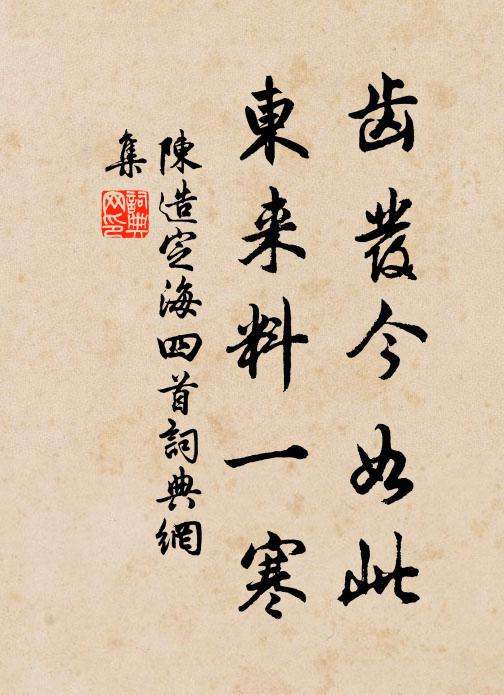 齿發今如此
東来料一寒
陳造定海四首詞典網
集
詞典
网印